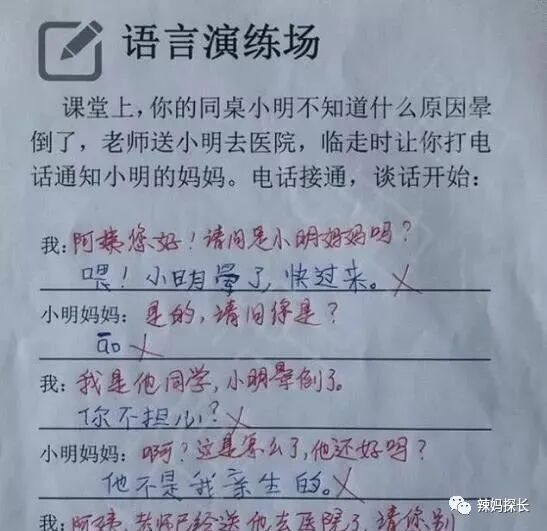 语言演练场
课堂上，你的同桌小明不知道什么原因晕
倒了，老师送小明去医院，临走时让你打电
话通知小明的妈妈。电话接通，谈话开始：
我：阿姨您好！请问是小明妈妈吗？
喂！小明晕了，快过来。
小明妈妈：是的，请问你是？
āo
我：我是他同学，小明晕倒了。
你不担心？
小明妈妈：啊？这是怎么了，他还好吗？
他不是我亲生的。
我：阿姨，老师已经送他去医院了，请您别
辣妈探长